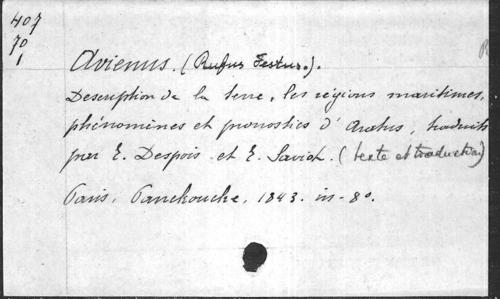 407
70
1
Avienus. (Rufus Festus.).
Description de la terre, les régions maritimes,
phénomènes et pronostics d'Aratus, traduits
par E. Despois et E. Saviot. (texte et traduction)
Paris, Panckoucke, 1843. in-8º.